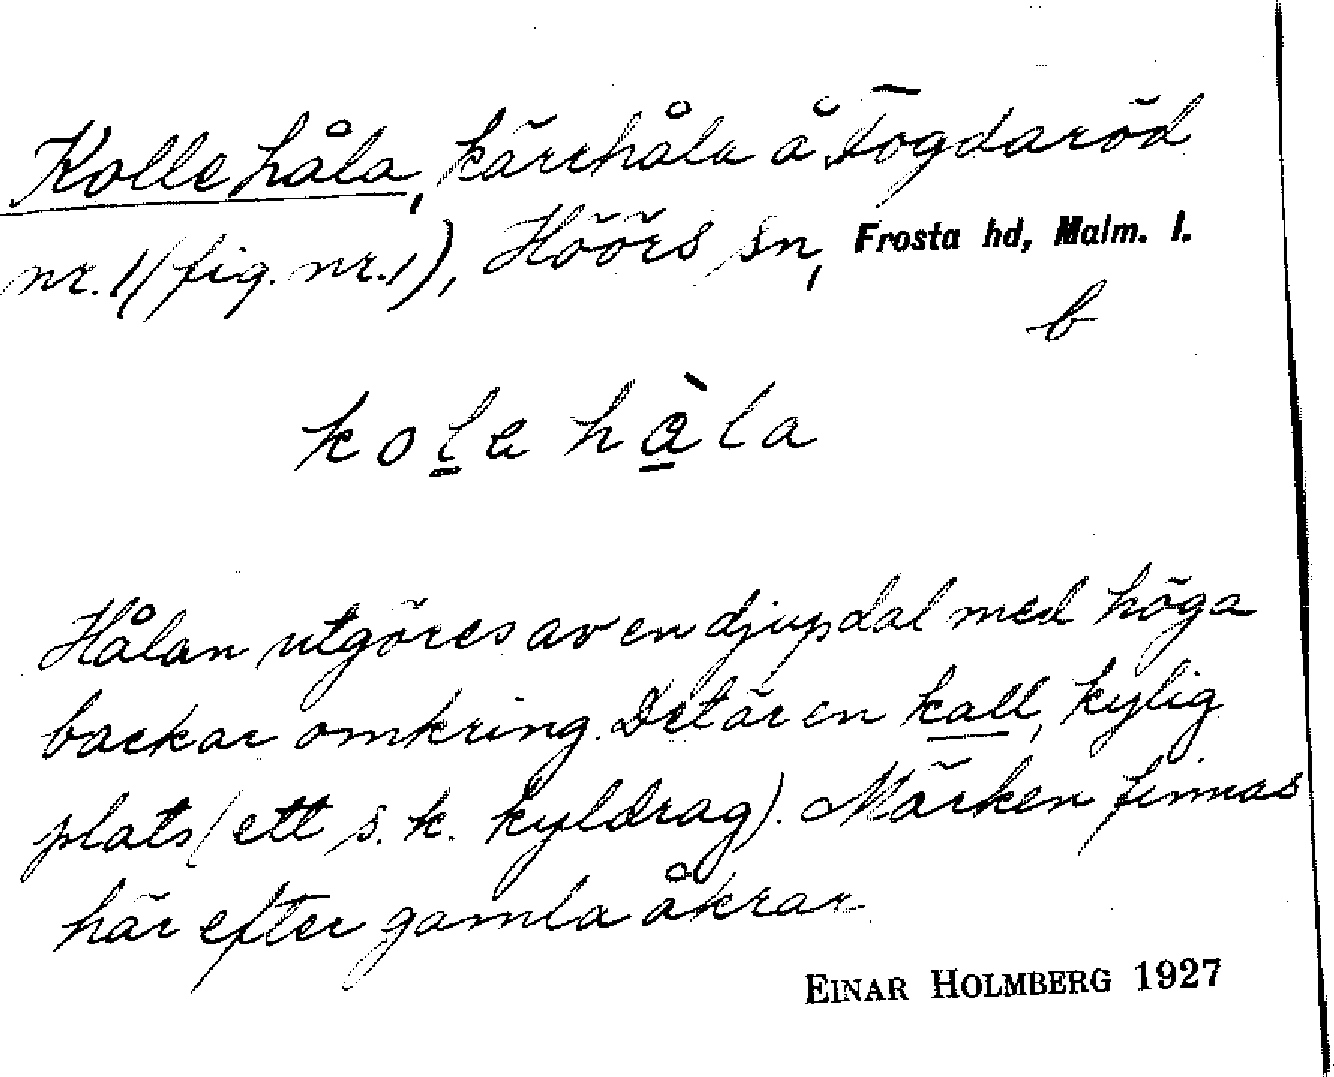 Kolle håla, kärrhåla å Togdaröd
nr. 1 (fig. nr. 1), Höörs sn, Frosta hd, Malm. l.
b
kole hàla
Hålan utgöres av en djup dal med höga
backar omkring. Det är en kall, kylig
plats (ett s.k. kyldrag). Märken finnas
här efter gamla åkrar.
EINAR HOLMBERG 1927